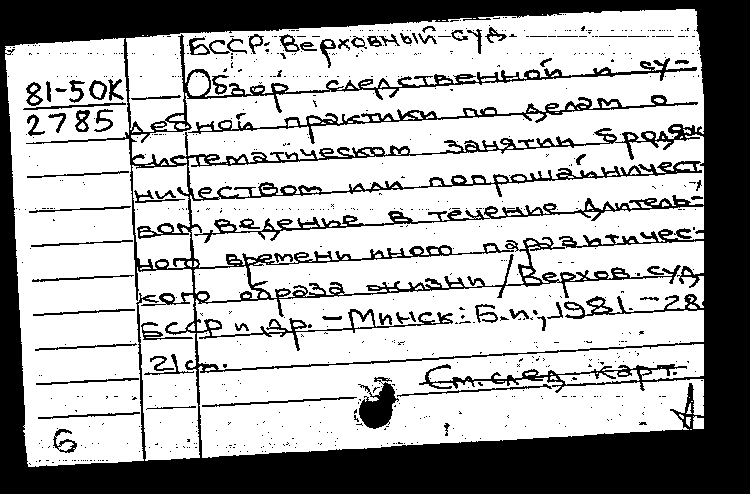 БССР. Верховный суд.
81-50К
2785
Обзор следственной и су-
дебной практики по делам о
систематическом занятии бродяж
ничеством или попрошайничест
вом, ведение в течение длитель-
ного времени иного паразитичес-
кого образа жизни / Верхов. суд
БССР и др. - Минск: Б.и., 1981. - 28
21 см.
См. след. карт.
6